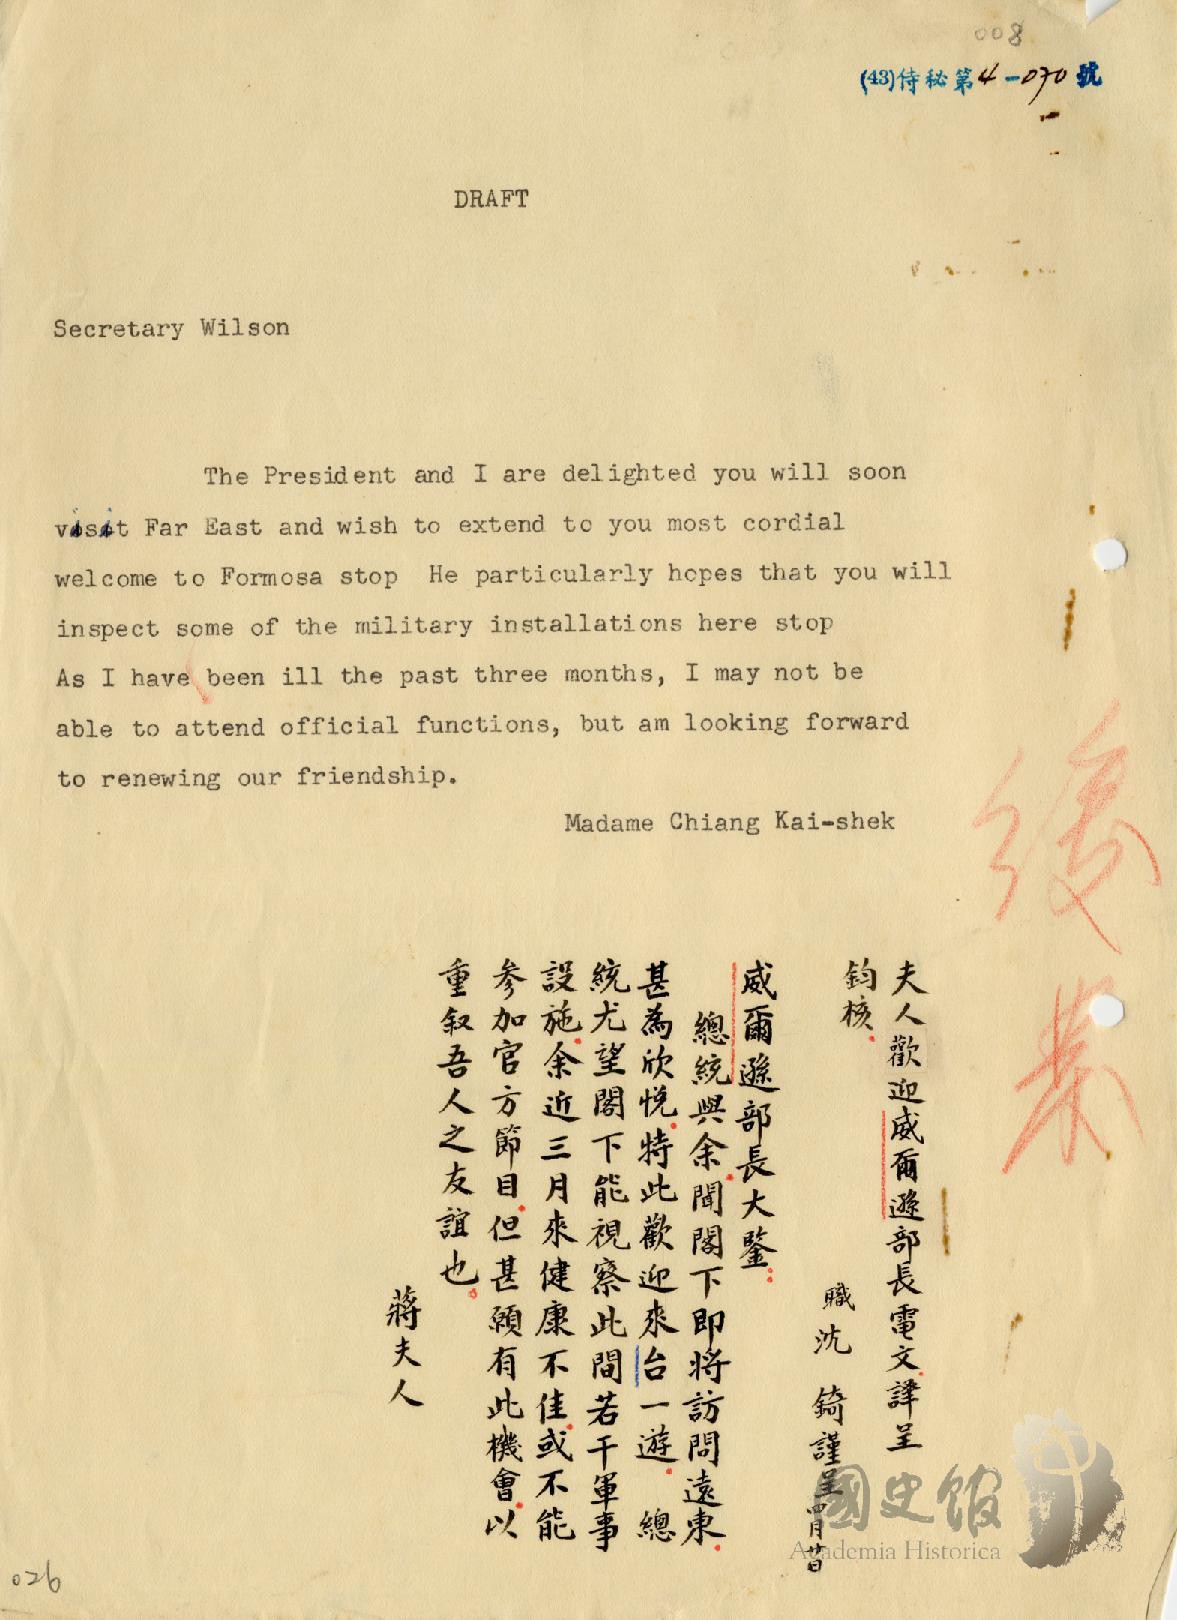 008
(43)侍秘第4-070號
DRAFT
Secretary Wilson
The President and I are delighted you will soon
visit Far East and wish to extend to you most cordial
welcome to Formosa stop  He particularly hopes that you will
inspect some of the military installations here stop
As I have been ill the past three months, I may not be
able to attend official functions, but am looking forward
to renewing our friendship.
Madame Chiang Kai-shek
夫人歡迎威爾遜部長電文譯呈
鈞核.
職沈錡謹呈四月廿日
威爾遜部長大鑒:
總統與余聞閣下即將訪問遠東.
甚為欣悅.特此歡迎來台一遊.總
統尤望閣下能視察此間若干軍事
設施.余近三月來健康不佳.或不能
參加官方節目.但甚願有此機會.以
重叙吾人之友誼也。
蔣夫人
國史館
Academia Historica
026